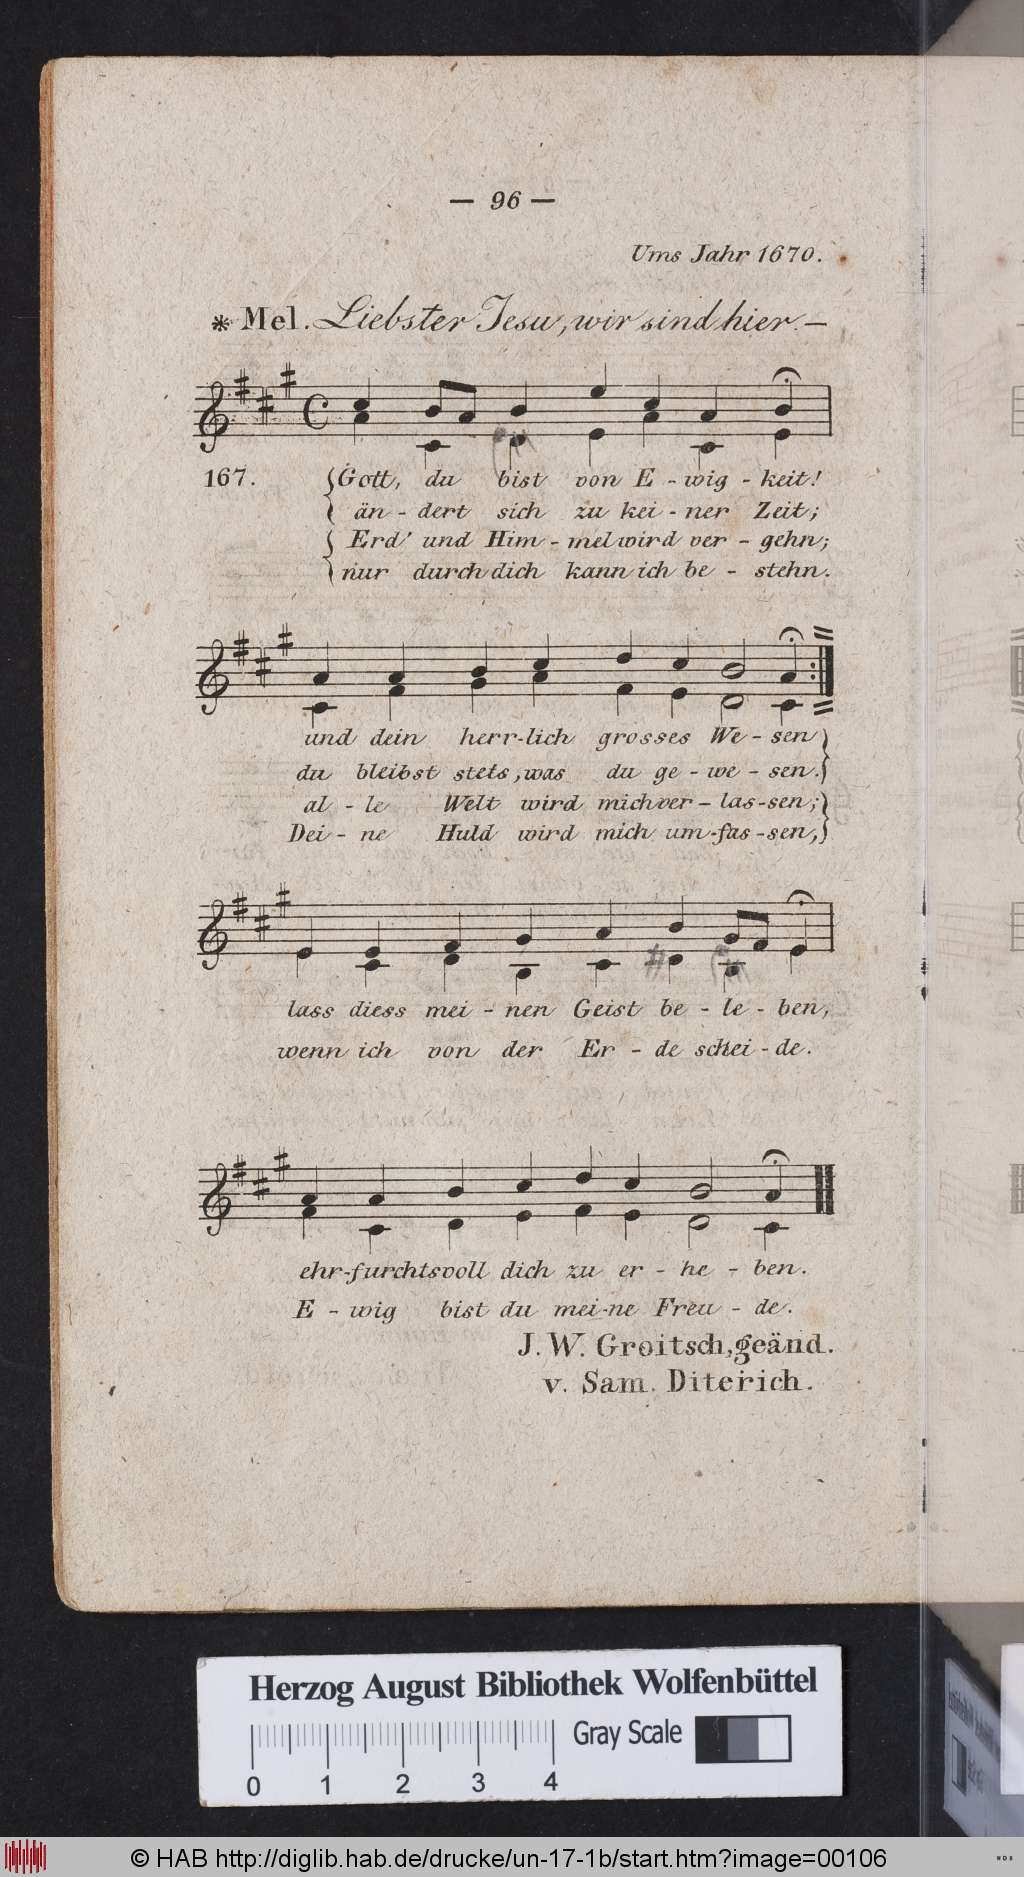 — 96 —
Ums Jahr 1670.
* Mel. Liebster Jesu, wir sind hier. —
167. Gott, du bist von E - wig - keit!
än - dert sich zu kei - ner Zeit;
Erd' und Him - mel wird ver - gehn;
nur durch dich kann ich be - stehn.
und dein herr - lich grosses We - sen
du bleibst stets, was du ge - we - sen.
al - le Welt wird mich ver - las - sen;
Dei - ne Huld wird mich um - fas - sen,
lass diess mei - nen Geist be - le - ben,
wenn ich von der Er - de schei - de.
ehr - furchtsvoll dich zu er - he - ben.
E - wig bist du mei - ne Freu - de.
J. W. Groitsch, geänd.
v. Sam. Diterich.
Herzog August Bibliothek Wolfenbüttel
Gray Scale
0 1 2 3 4
© HAB http://diglib.hab.de/drucke/un-17-1b/start.htm?image=00106